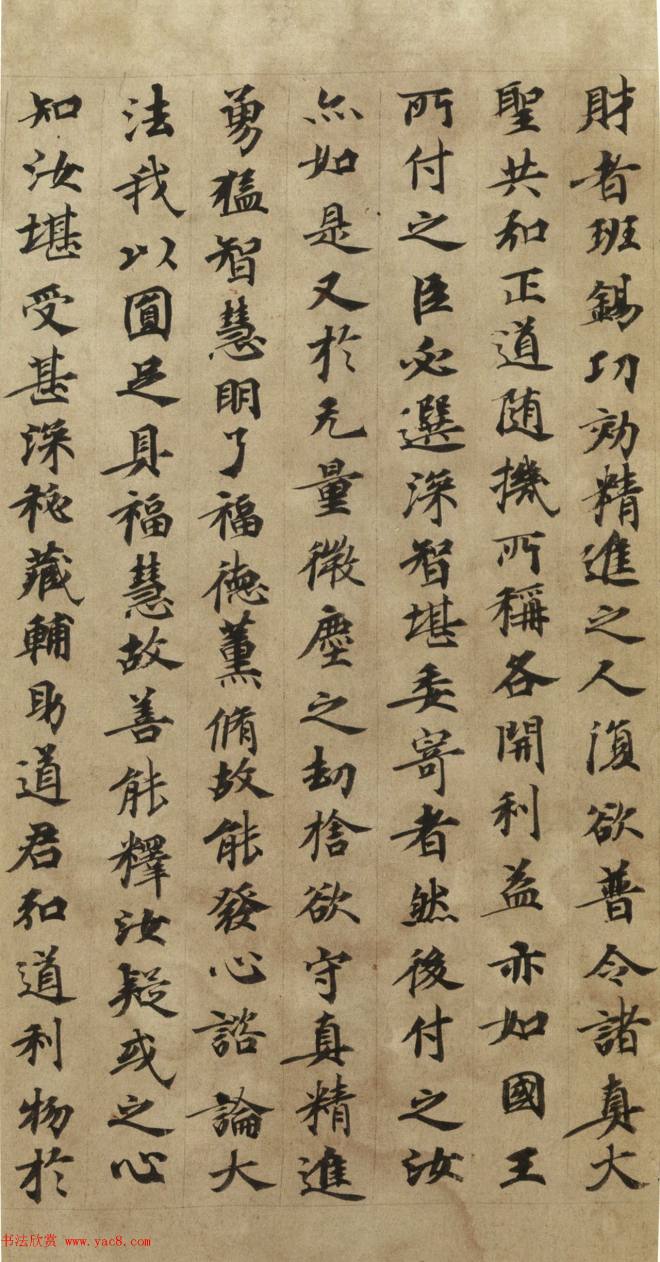 財者班錫功効精進之人復欲普令諸真大
聖共和正道随機所稱各開利益亦如國王
所付之臣必選深智堪委寄者然後付之汝
亦如是又於无量微塵之劫捨欲守真精進
勇猛智慧明了福德薰脩故能發心諮論大
法我以圓足具福慧故善能釋汝疑或之心
知汝堪受甚深秘藏輔助道君和道利物於
书法欣赏 www.yac8.com